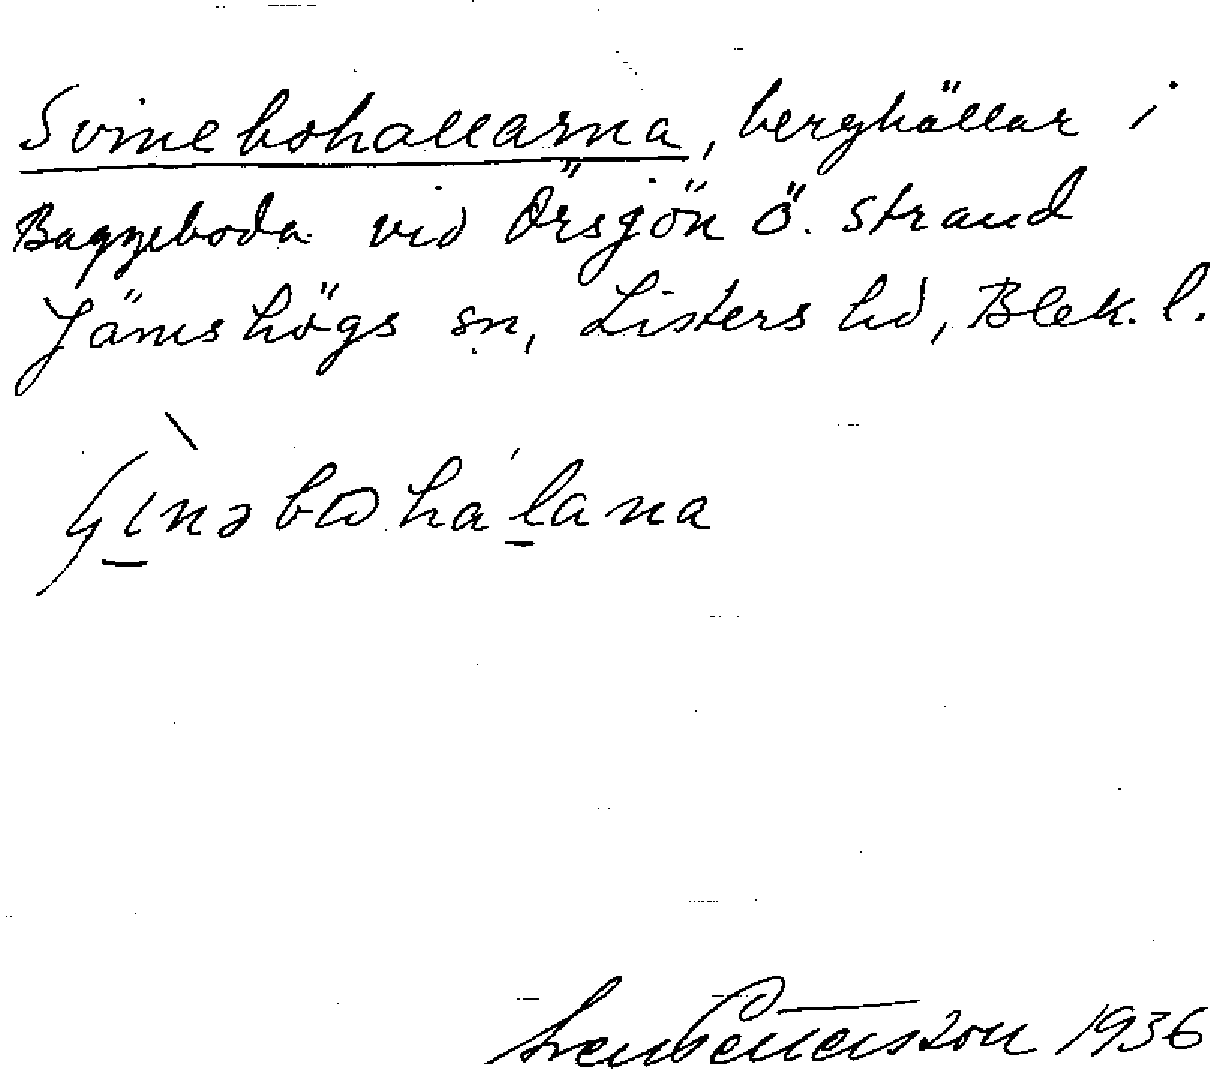 Svinebohallarna, berghällar i
Baggeboda vid Örsjön Ö. strand
Jämshögs sn, Listers hd, Blek. l.
Sven Pettersson 1936